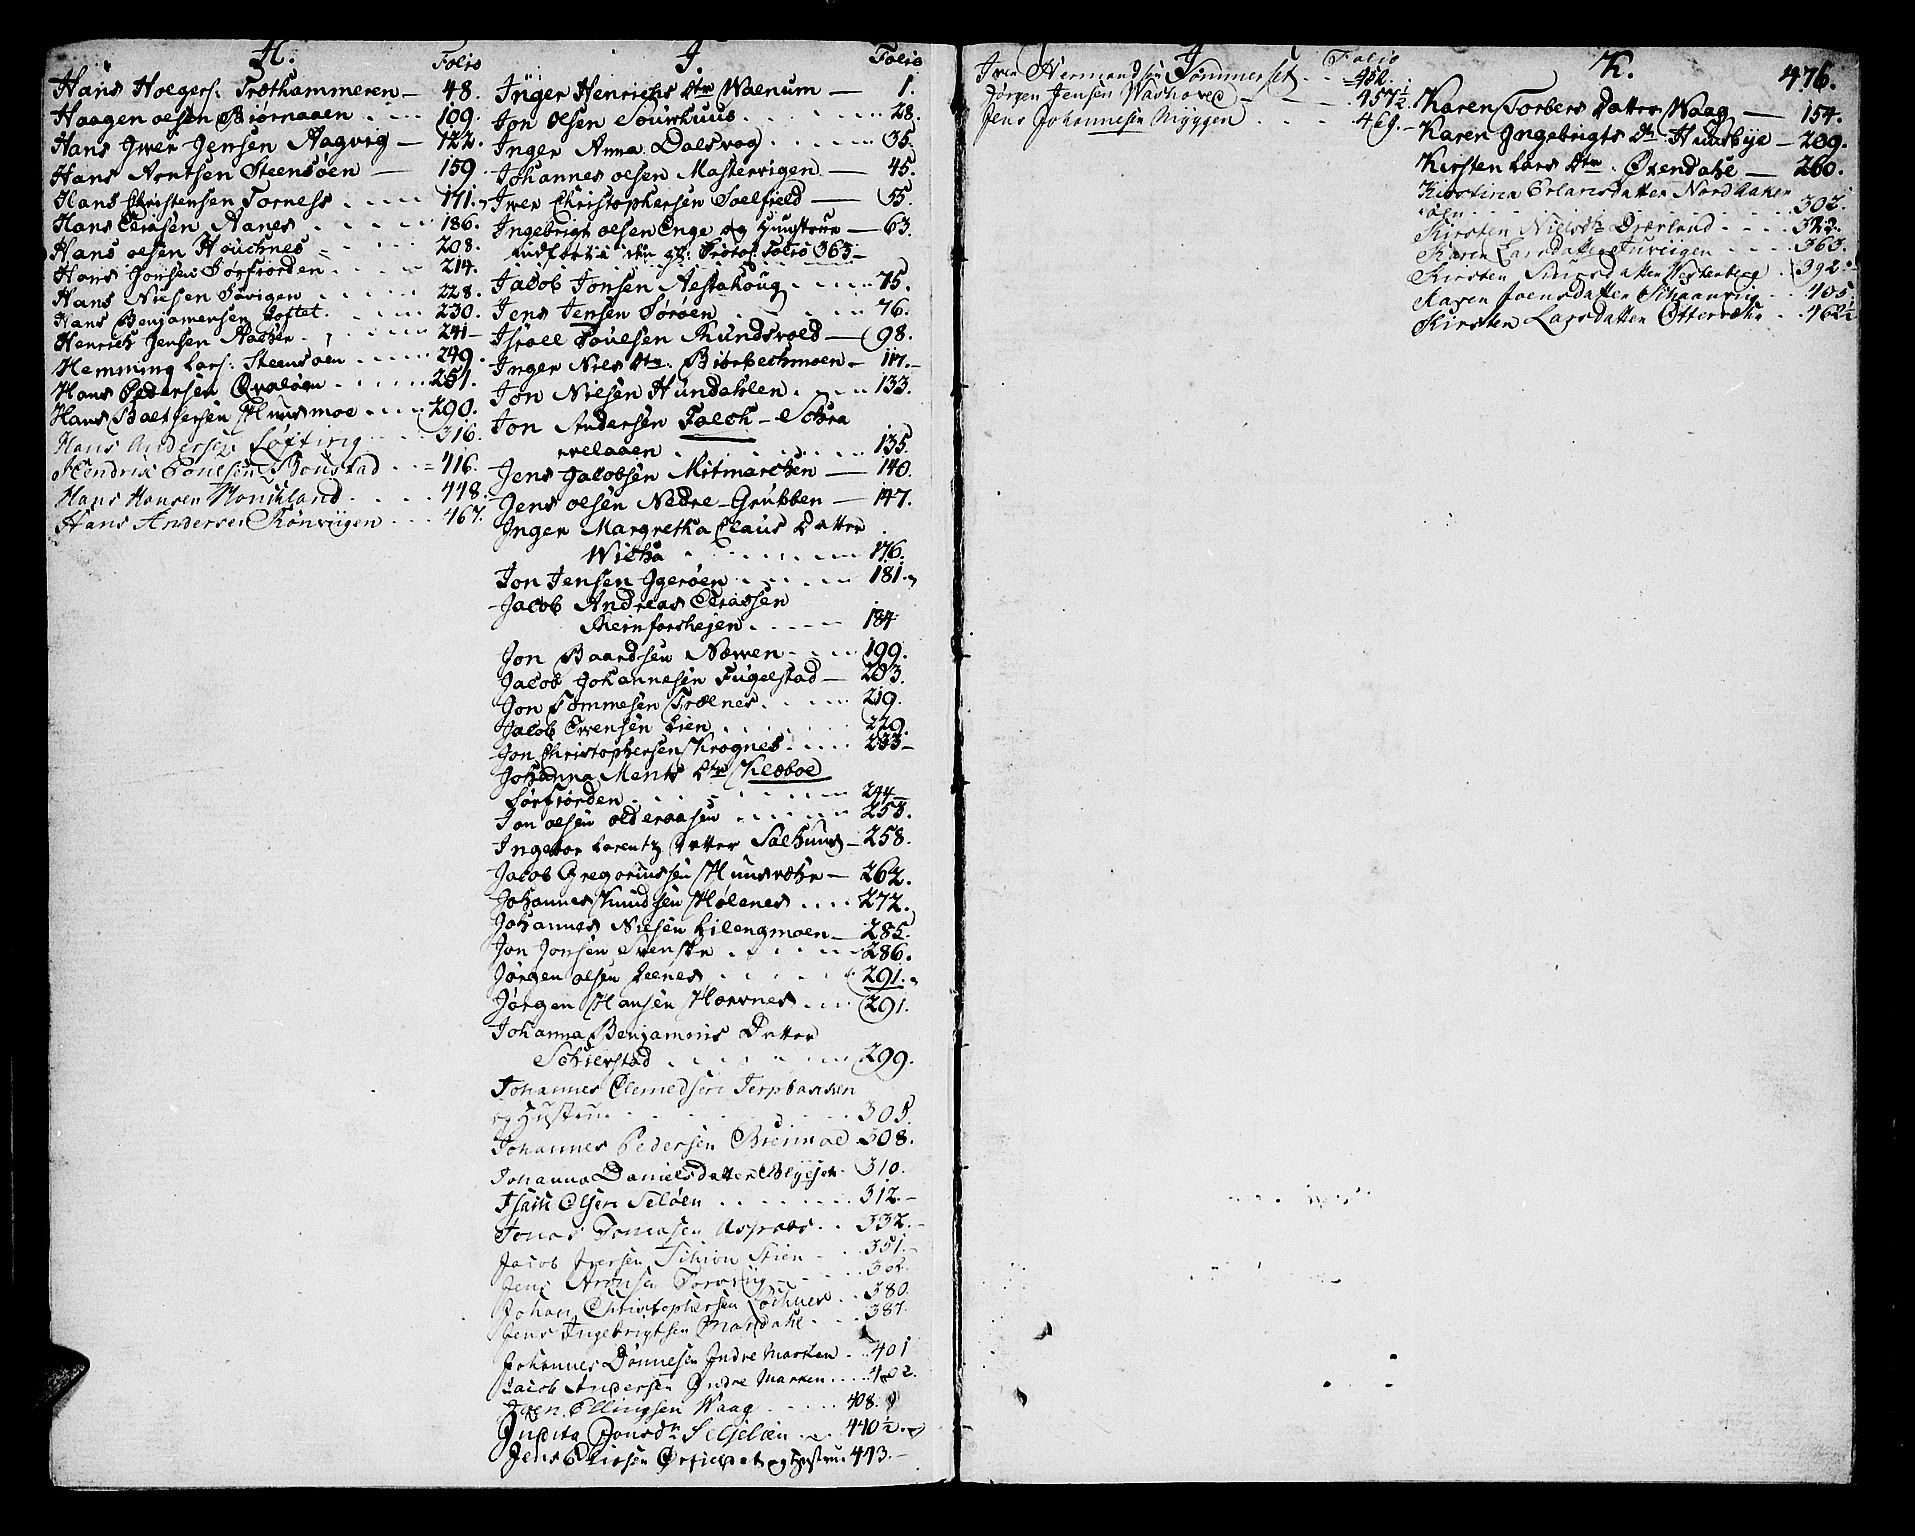 H. Folio
Hans Holgers: Træthammeren — 48.
Haagen olsen Biørnaaen 109.
Hans Iwer Jensen Aagvig — 122.
Hans Arntsen Steensöen — 159
Hans Christensen Torness 171.
Hans Eriksen Aanes 186.
Hans olsen Houchnes 208.
Hans Jonsen Sørfiorden 214.
Hans Nielsen Sörigen 228.
Hans Benjamensen Toftet 230.
Henrich Jensen Aaker 241
Hemming Lars: Steensöen 249.
Hans Pedersen Qvaløen 251.
Hans Balthersen Huusmoe 290.
Hans Andersen Løfting 316.
Hendrik Poulsen Bonstad 416.
Hans Hansen Houchland 448.
Hans Andersen Rönviigen 467.
J. Folio
Inger Henrichs dtr Waenum — 1.
Jon olsen Sourhuus 28.
Inger Anna Dalsvog 35.
Johannes olsen Mastervigen — 45.
Iwer Christophersen Soelfield — 55.
Ingebrigt olsen Enge og Huustrue — 63.
indført i den gl: Protoc: Folio 363 —
Jacob Jonsen Aestahoug 75.
Jens Jensen Sørøen 76.
Israel Poulsen Rundsvold — 98.
Inger Niels dtr Biörbechmoen — 117.
Jon Nielsen Hundahlen 133.
Jon Andersen Falch — Schra
velaaen 135.
Jens Jacobsen Mitmarchen — 140.
Jens olsen Nedre-Grubben — 147.
Inger Margretha Claus Datter
Wicha 176.
Jon Jensen Ygerøen 181.
Jacob Andreas Eriksen
Reinforshejen 184
Jon Baardsen Næwen 199.
Jacob Johannesen Fugelstad — 203.
Jon Tommesen Trælnes 219.
Jacob Ewensen Lien 229.
Jon Christophersen Krognes 233
Johanna Ments dtr Klæboe
Sørfiorden 244
Jon olsen olderaasen 258.
Ingebor Lorentz Datter Salhuus — 258.
Jacob Gregoriussen Huusvæhr — 262.
Johannes Knudsen Holenes 272.
Johannes Nielsen Lilengmoen — 285.
Jon Jonsen Svenske 286.
Jørgen olsen Leenes 291.
Jørgen Hansen Horvnes 291.
Johanna Benjamins Datter
Schierstad 299.
Johannes Clemedsen Terpbakken
og Hustrue 305.
Johannes Pedersen Breimoe 308.
Johanna Danielsdatter 310.
Isaac Olsen Seløen 312.
Jonas Tomasen 332.
Jacob Iversen 351.
Jens Aronsen Torvviig
Johan Christophersen 380.
Jens Ingebrigtsen 387.
Johannes Dönnesen Indre Marken 401
Jacob Andersen Indre Marken 402.
Ellingsen Waag 408.
Jonsdr Selsøen 440½
Jens og Hustrue 443.
J. Folio
Iver Normandsen Sommerset 452.
Jørgen Jensen 457½
Jens Johannesen Myggen 469.
K. 476.
Karen Torbers Datter Waag — 154.
Karen Ingebrigts dr Huusbye — 209.
Kirsten Lars dtr Oxendahl — 260.
Kirstina Erlansdatter Nordtaker
302.
Kirsten Nielsdr 322.
Karen Larsdatter 363.
Kirsten Simensdatter Westerberg 392.
Karen Joensdatter 405
Kirsten Larsdatter Ottervæhr 462½